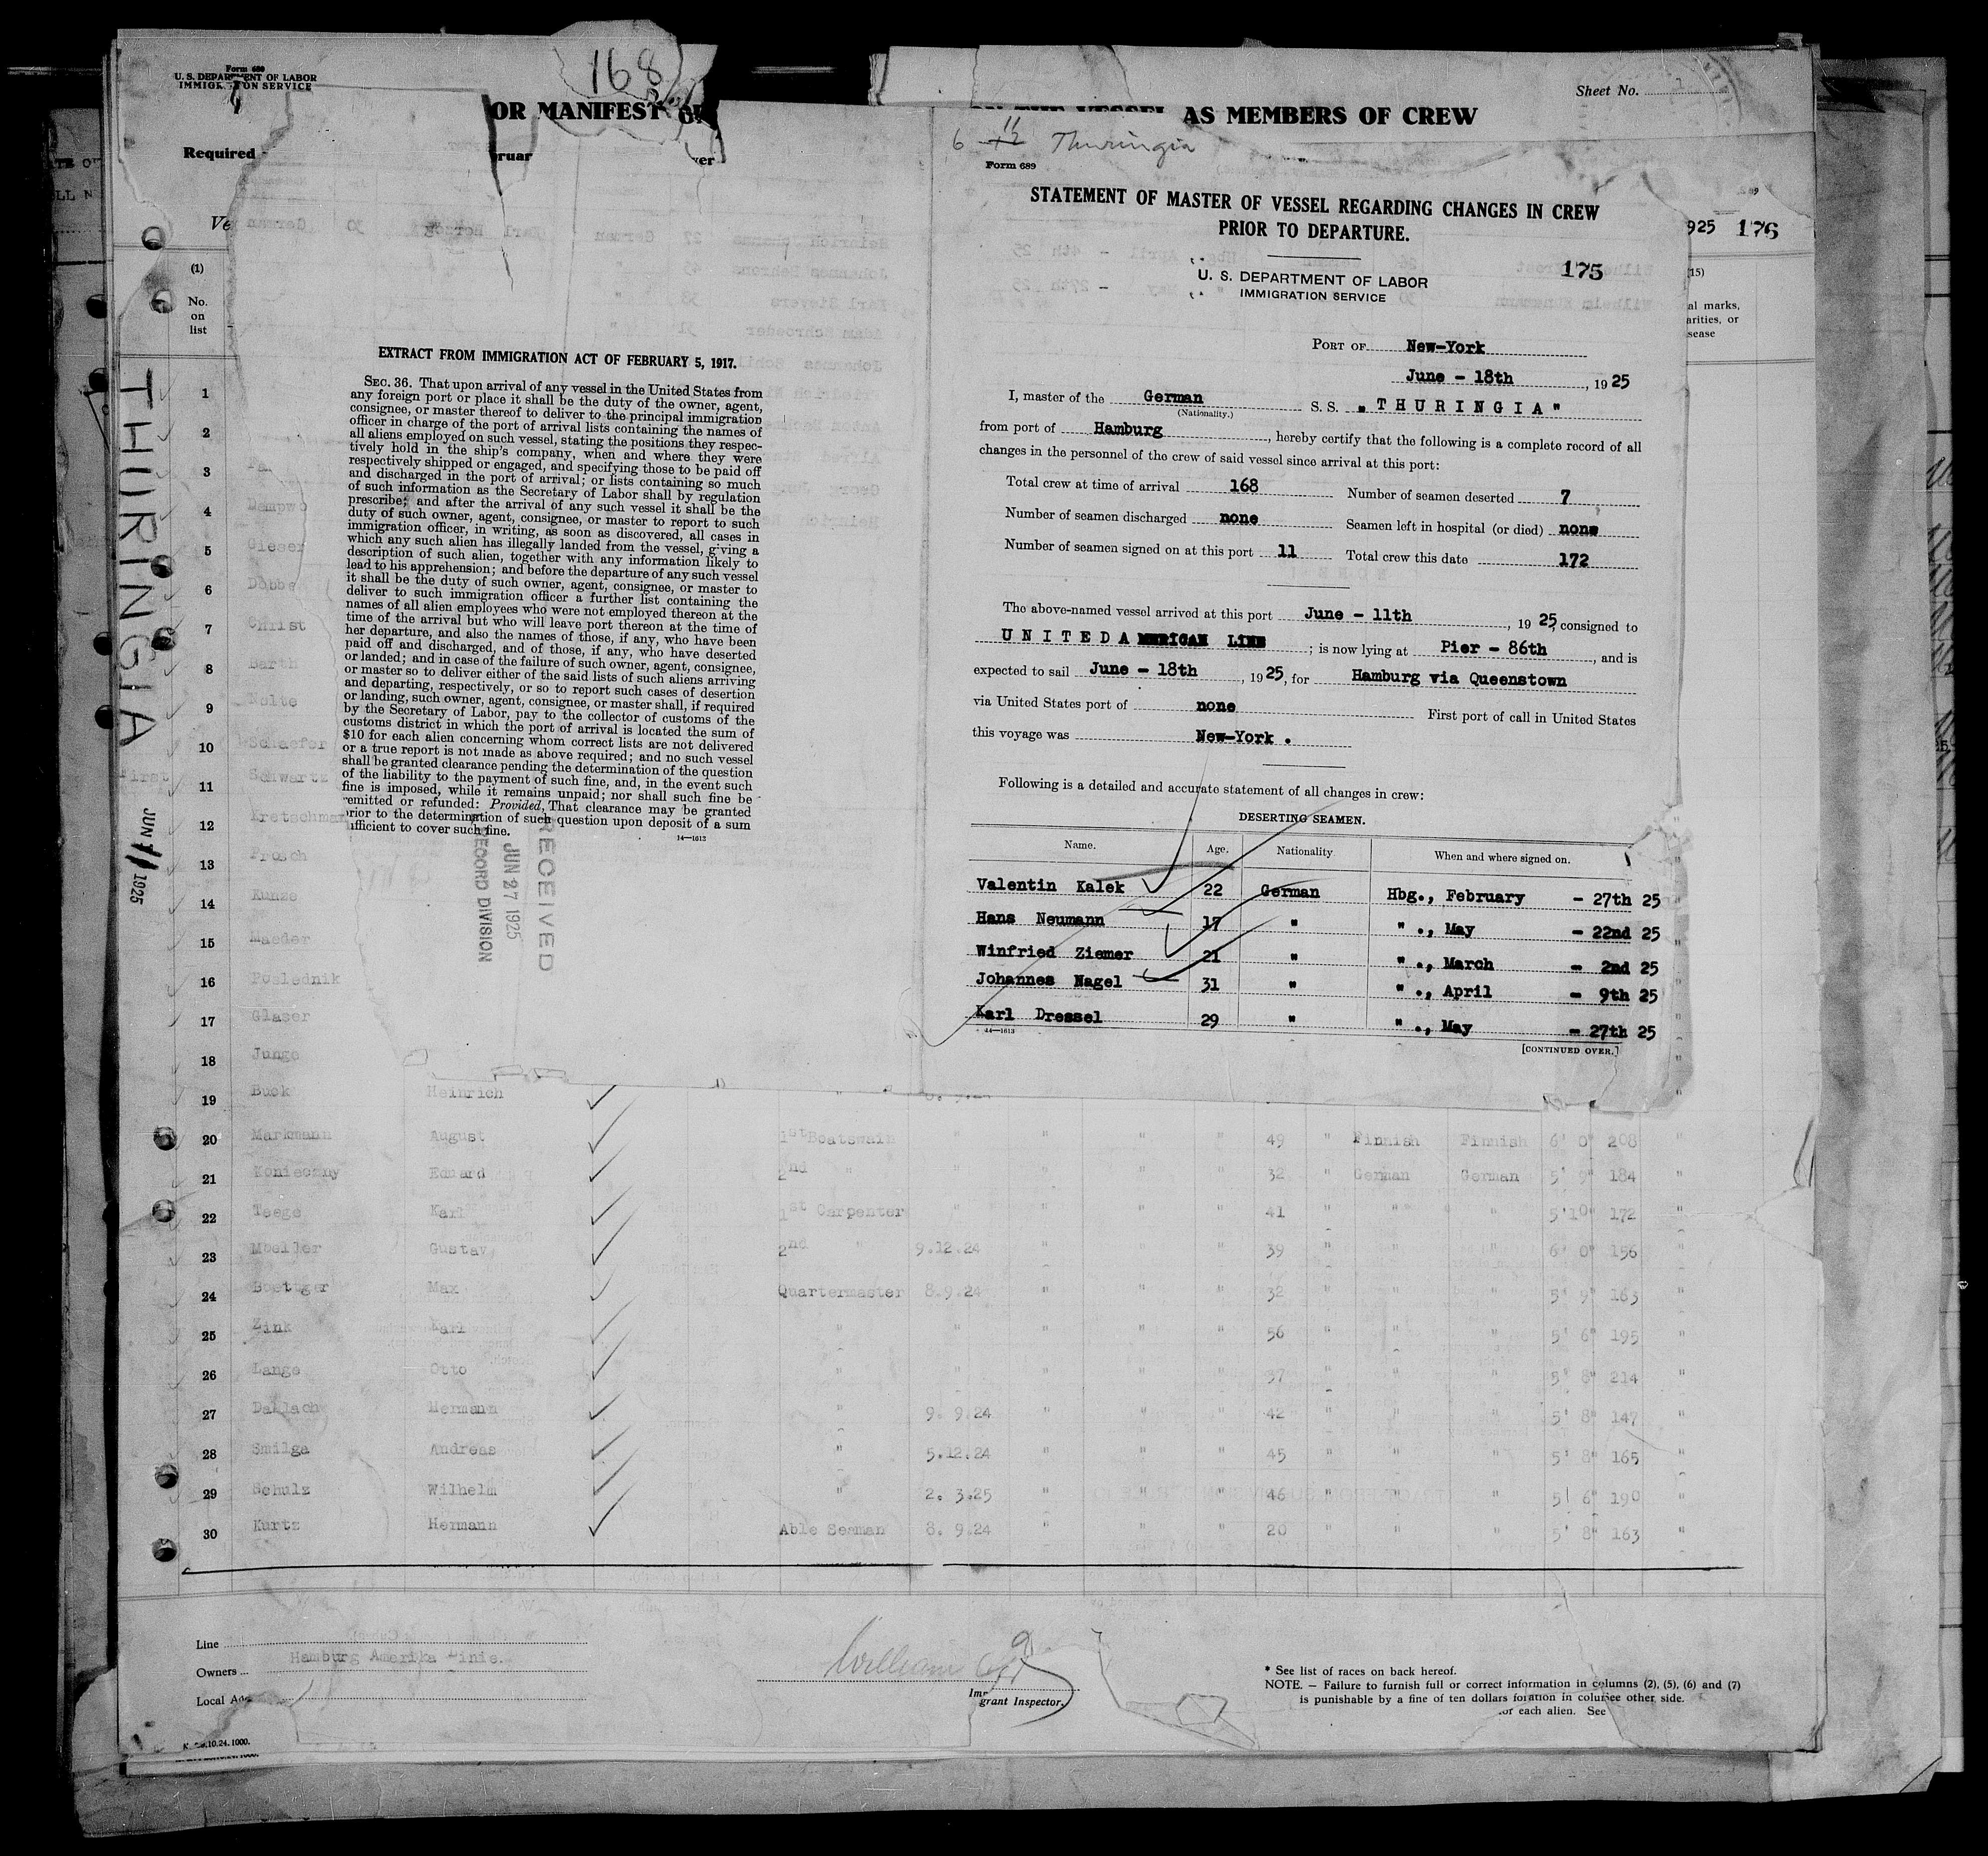 Form 680
U. S. DEPARTMENT OF LABOR
IMMIGRATION SERVICE
168
Sheet No.
OR MANIFEST
AS MEMBERS OF CREW
Required
ruar
ver
Ve
925 176
(1)
No.
on
list
(15)
al marks,
arities, or
sease
THURINGIA
JUN 11 1925
EXTRACT FROM IMMIGRATION ACT OF FEBRUARY 5, 1917.
SEC. 36. That upon arrival of any vessel in the United States from
any foreign port or place it shall be the duty of the owner, agent,
consignee, or master thereof to deliver to the principal immigration
officer in charge of the port of arrival lists containing the names of
all aliens employed on such vessel, stating the positions they respec-
tively hold in the ship's company, when and where they were
respectively shipped or engaged, and specifying those to be paid off
and discharged in the port of arrival; or lists containing so much
of such information as the Secretary of Labor shall by regulation
prescribe; and after the arrival of any such vessel it shall be the
duty of such owner, agent, consignee, or master to report to such
immigration officer, in writing, as soon as discovered, all cases in
which any such alien has illegally landed from the vessel, giving a
description of such alien, together with any information likely to
lead to his apprehension; and before the departure of any such vessel
it shall be the duty of such owner, agent, consignee, or master to
deliver to such immigration officer a further list containing the
names of all alien employees who were not employed thereon at the
time of the arrival but who will leave port thereon at the time of
her departure, and also the names of those, if any, who have been
paid off and discharged, and of those, if any, who have deserted
or landed; and in case of the failure of such owner, agent, consignee,
or master so to deliver either of the said lists of such aliens arriving
and departing, respectively, or so to report such cases of desertion
or landing, such owner, agent, consignee, or master shall, if required
by the Secretary of Labor, pay to the collector of customs of the
customs district in which the port of arrival is located the sum of
$10 for each alien concerning whom correct lists are not delivered
or a true report is not made as above required; and no such vessel
shall be granted clearance pending the determination of the question
of the liability to the payment of such fine, and, in the event such
fine is imposed, while it remains unpaid; nor shall such fine be
emitted or refunded: Provided, That clearance may be granted
rior to the determination of such question upon deposit of a sum
ufficient to cover such fine.
14—1613
RECEIVED
JUN 27 1925
RECORD DIVISION
6 11 Thuringia
Form 689
STATEMENT OF MASTER OF VESSEL REGARDING CHANGES IN CREW
PRIOR TO DEPARTURE.
175
U. S. DEPARTMENT OF LABOR
IMMIGRATION SERVICE
PORT OF New-York
June - 18th, 1925
I, master of the German S. S. "THURINGIA"
(Nationality.)
from port of Hamburg, hereby certify that the following is a complete record of all
changes in the personnel of the crew of said vessel since arrival at this port:
Total crew at time of arrival 168 Number of seamen deserted 7
Number of seamen discharged none Seamen left in hospital (or died) none
Number of seamen signed on at this port 11 Total crew this date 172
The above-named vessel arrived at this port June - 11th, 1925, consigned to
UNITED AMERICAN LINE; is now lying at Pier - 86th, and is
expected to sail June - 18th, 1925, for Hamburg via Queenstown
via United States port of none First port of call in United States
this voyage was New-York.
Following is a detailed and accurate statement of all changes in crew:
DESERTING SEAMEN.
Name. Age. Nationality When and where signed on.
Valentin Kalek 22 German Hbg., February - 27th 25
Hans Neumann 17 " " ., May - 22nd 25
Winfried Ziemer 21 " " ., March - 2nd 25
Johannes Nagel 31 " " ., April - 9th 25
Karl Dressel 29 " " ., May - 27th 25
14—1613
[CONTINUED OVER.]
1
2
3
4 Dempwo
5 Gieser
6 Dobbe
7 Christ
8 Barth
9 Nolte
10 Schaefer
First
11 Schwartz
12 Kretschmar
13 Frosch
14 Kunze
15 Maeder
16 Poslednik
17 Glaser
18 Junge
19 Buck Heinrich
20 Markmann August 1st Boatswain " " " " 49 " Finnish Finnish 6' 0" 208 "
21 Konieczny Eduard 2nd " " " " " 32 " German German 5' 9" 184 "
22 Teege Karl 1st Carpenter " " " " 41 " " " 5'10" 172 "
23 Moeller Gustav 2nd " 9.12.24 " " " 39 " " " 6' 0" 156 "
24 Boettger Max Quartermaster 8.9.24 " " " 32 " " " 5' 9" 163 "
25 Zink Karl " " " " " 56 " " " 5' 6" 195 "
26 Lange Otto " " " " " 37 " " " 5' 8" 214 "
27 Dallach Hermann " 9. 9.24 " " " 42 " " " 5' 8" 147 "
28 Smilga Andreas " 5.12.24 " " " 45 " " " 5' 8" 165 "
29 Schulz Wilhelm " 2. 3.25 " " " 46 " " " 5' 6" 190 "
30 Kurtz Hermann Able Seaman 8. 9.24 " " " 20 " " " 5' 8" 163 "
Line
Owners Hamburg Amerika Linie.
Local Ad
William
grant Inspector.
* See list of races on back hereof.
NOTE. — Failure to furnish full or correct information in columns (2), (5), (6) and (7)
is punishable by a fine of ten dollars for each alien. See
See other side.
10.24.1000.